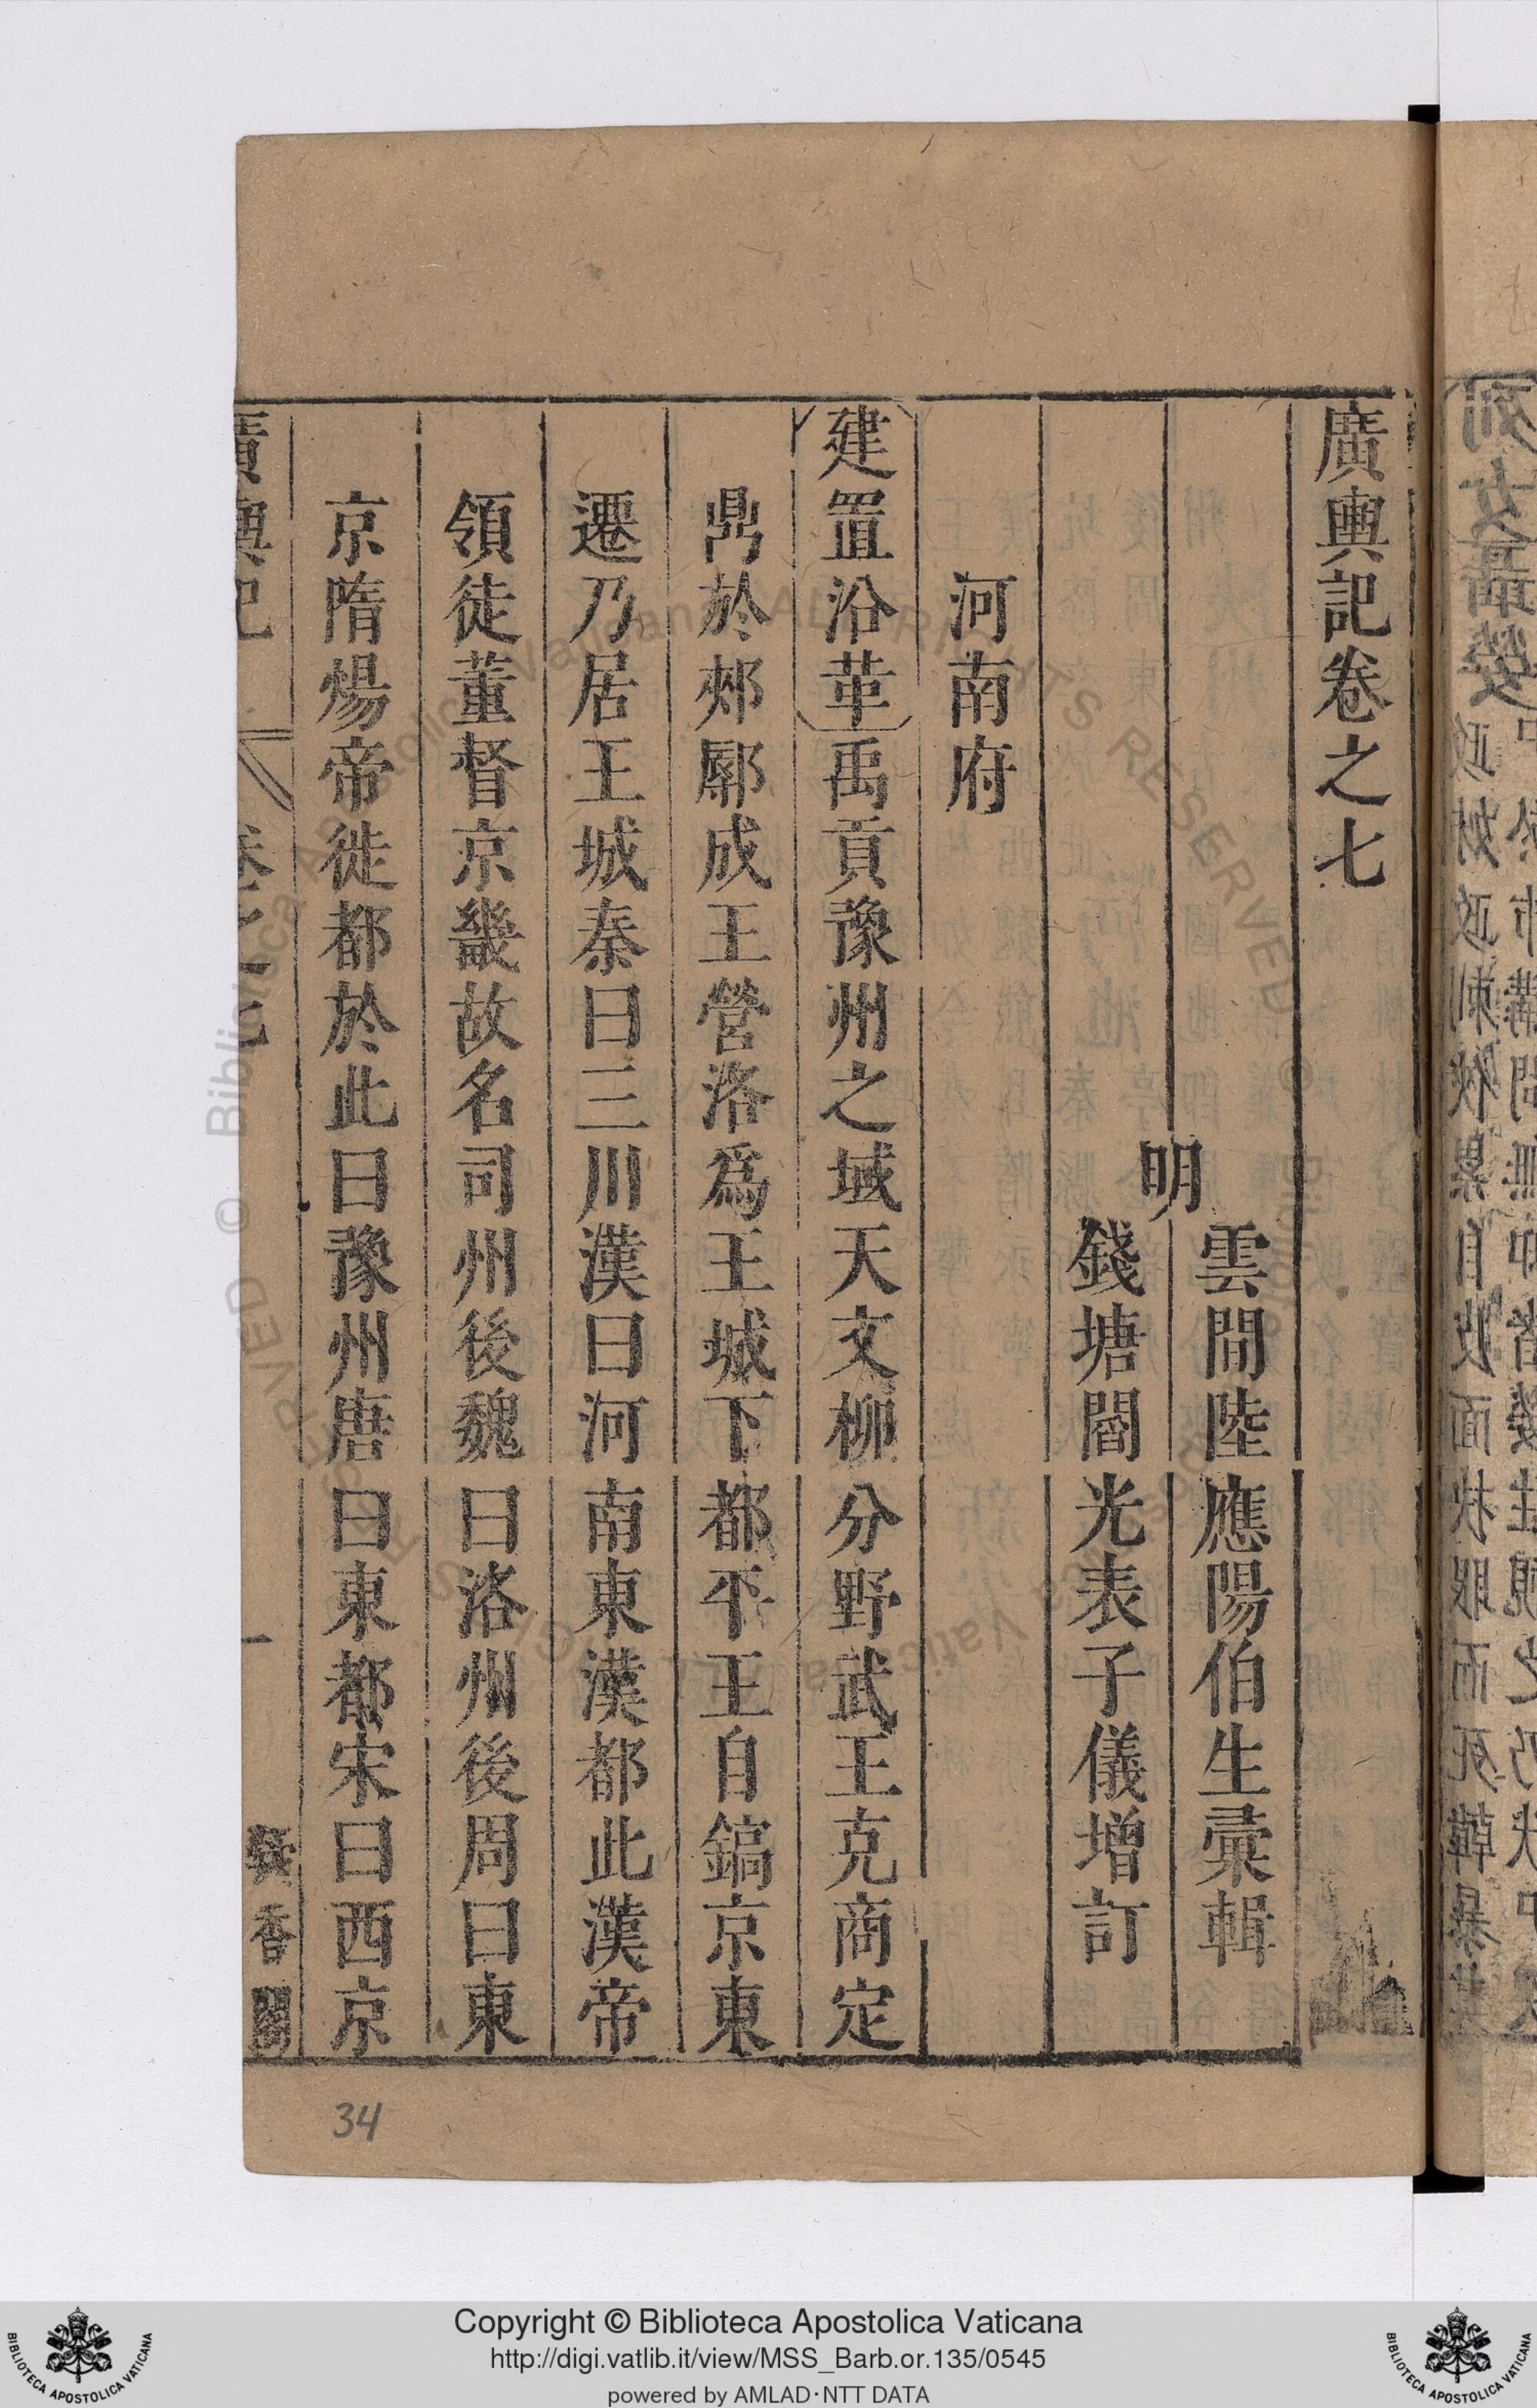 廣輿記卷之七
雲間陸應陽伯生彚輯
明
錢塘閻光表子儀增訂
河南府
建置沿革禹貢豫州之域天文柳分野武王克商定
鼎於郟鄏成王營洛爲王城下都平王自鎬京東
遷乃居王城秦曰三川漢曰河南東漢都此漢帝
領徒董督京畿故名司州後魏曰洛州後周曰東
京隋煬帝徙都於此曰豫州唐曰東都宋曰西京
廣輿記
卷之七
一
香閣
34
Copyright © Biblioteca Apostolica Vaticana
http://digi.vatlib.it/view/MSS_Barb.or.135/0545
powered by AMLAD·NTT DATA
BIBLIOTECA APOSTOLICA VATICANA
BIBLIOTECA APOSTOLICA VATICANA